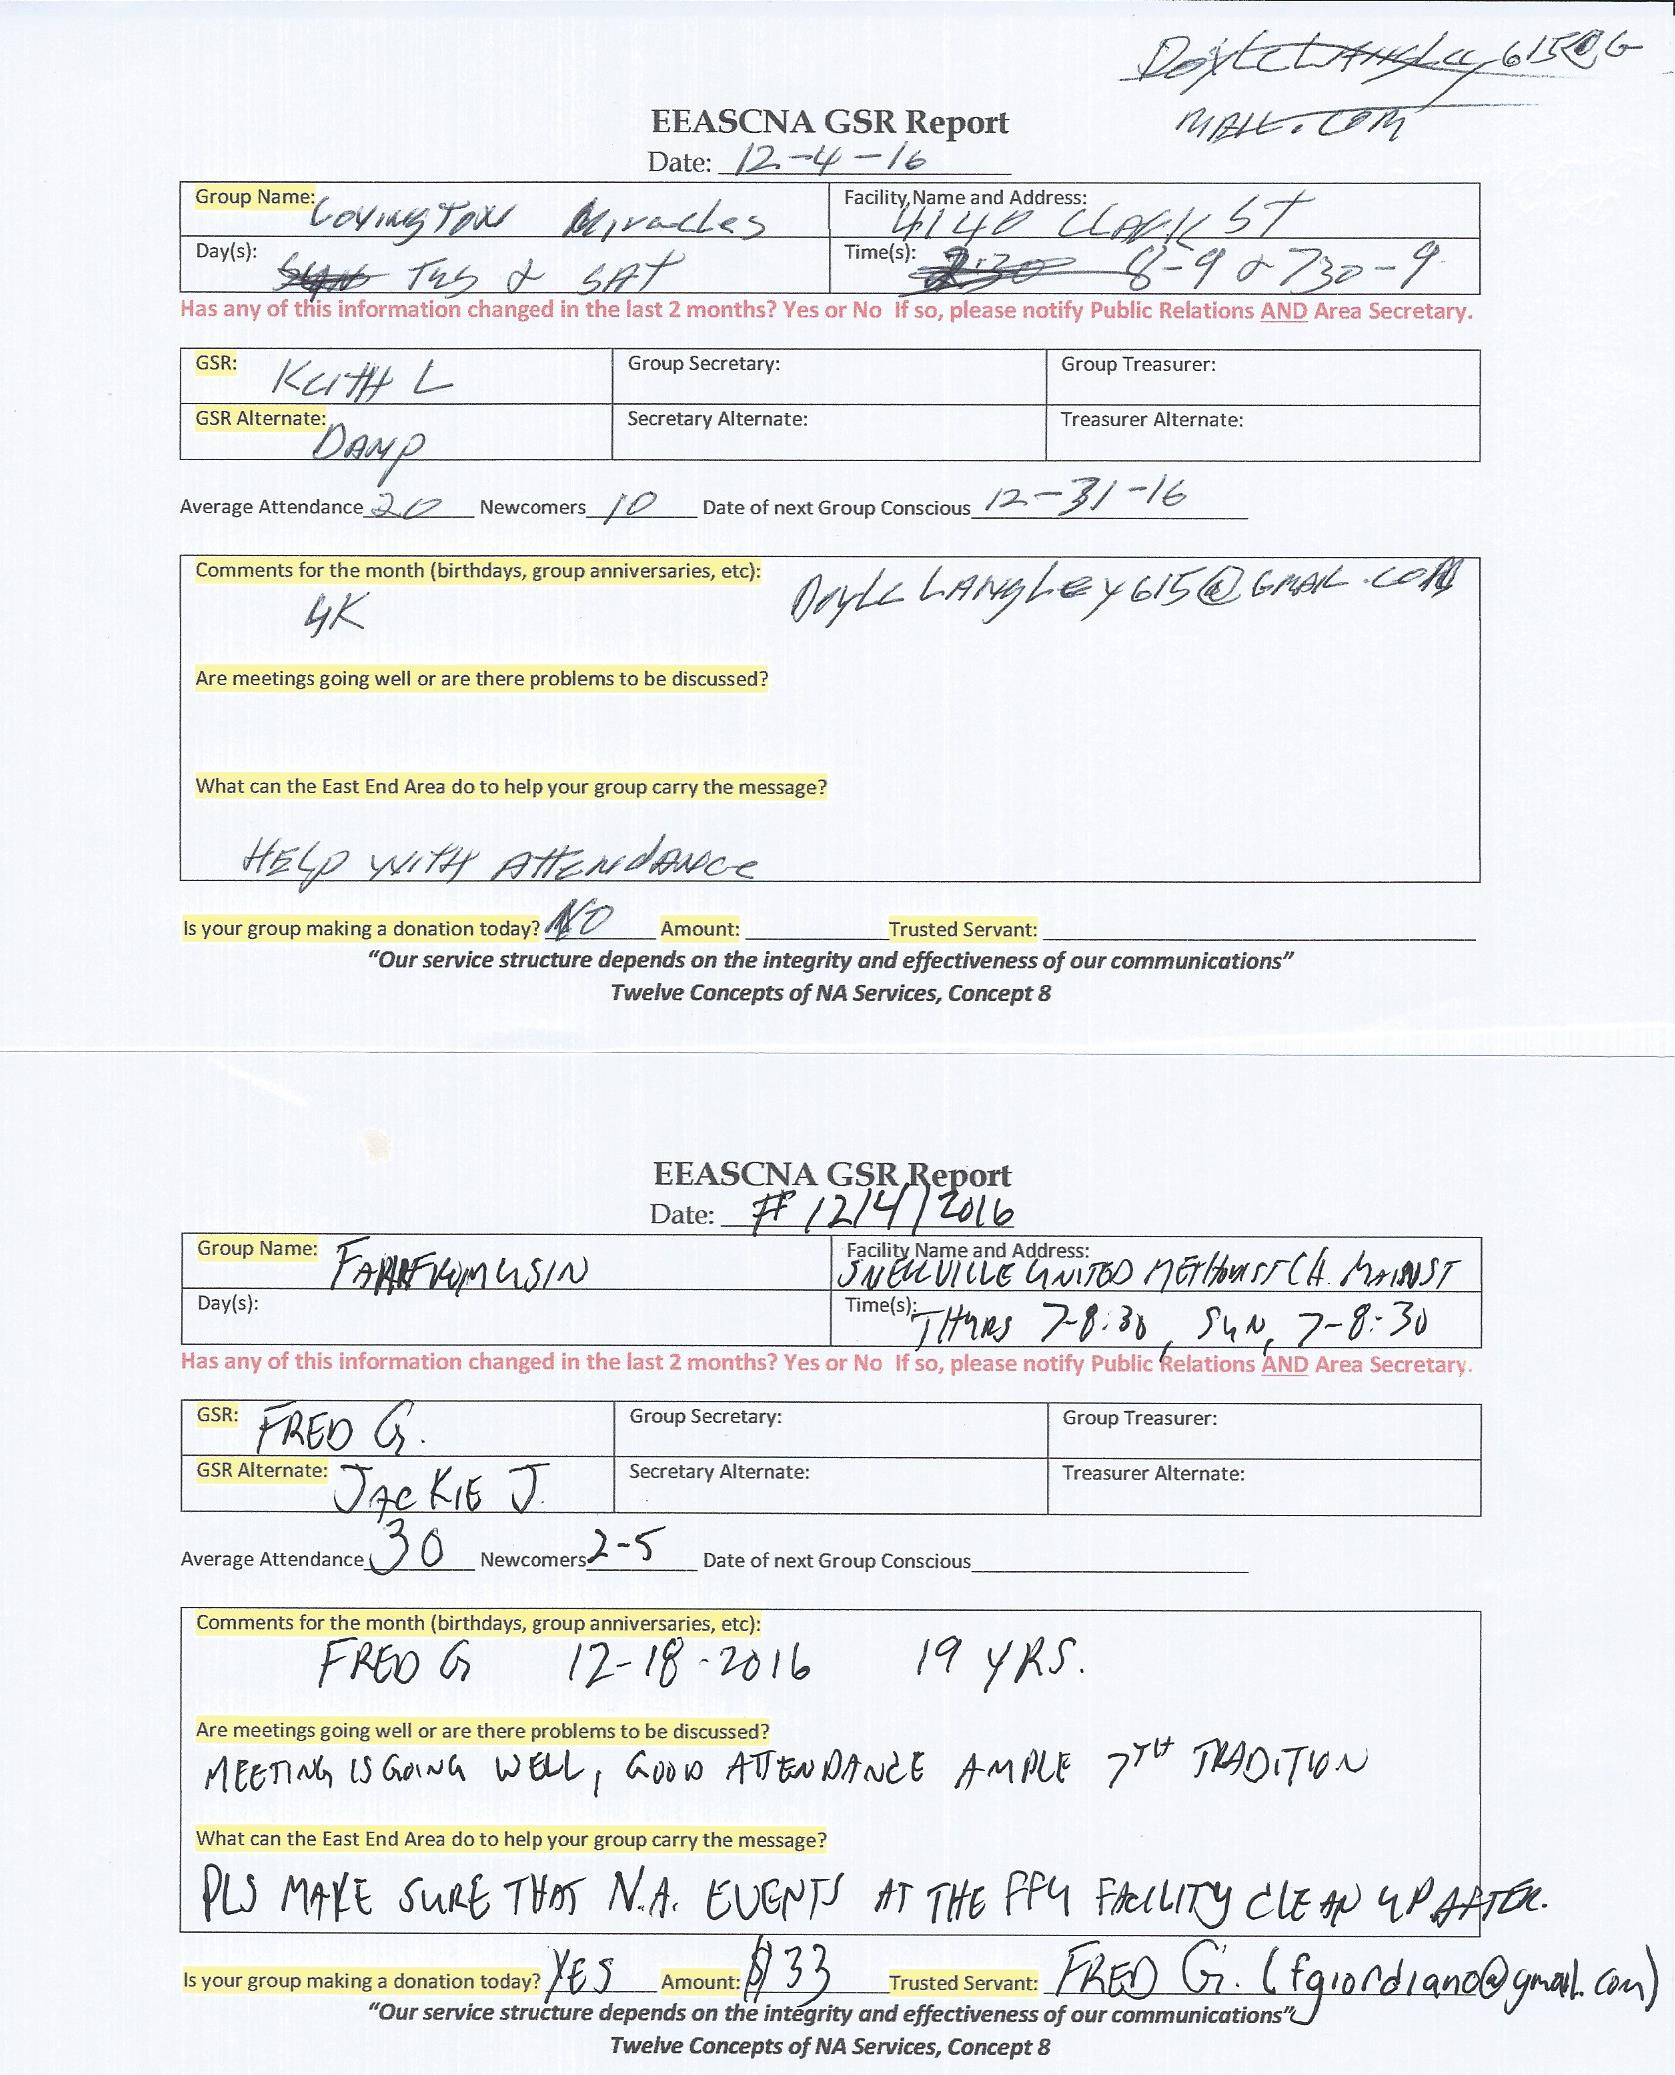 DoyleLangley615@G
MAIL.COM
EEASCNA GSR Report
Date: 12-4-16
Group Name: Covington Miracles
Facility Name and Address: 4140 CLARK ST
Day(s): SUN TUS & SAT
Time(s): 2:30 8-9 & 730-9
Has any of this information changed in the last 2 months? Yes or No If so, please notify Public Relations AND Area Secretary.
GSR: KEITH L
Group Secretary:
Group Treasurer:
GSR Alternate: DAN P
Secretary Alternate:
Treasurer Alternate:
Average Attendance 20 Newcomers 10 Date of next Group Conscious 12-31-16
Comments for the month (birthdays, group anniversaries, etc): DoyLe LANgLEy615@GMAIL.COM
Are meetings going well or are there problems to be discussed?
What can the East End Area do to help your group carry the message?
HELP WITH ATTENDANCE
Is your group making a donation today? NO Amount: Trusted Servant:
“Our service structure depends on the integrity and effectiveness of our communications”
Twelve Concepts of NA Services, Concept 8
EEASCNA GSR Report
Date: # 12/4/2016
Group Name:
Facility Name and Address: SNELLVILLE UNITED METHODIST CH. MAIN ST
Day(s):
Time(s): THURS 7-8:30, SUN, 7-8:30
Has any of this information changed in the last 2 months? Yes or No If so, please notify Public Relations AND Area Secretary.
GSR: FRED G.
Group Secretary:
Group Treasurer:
GSR Alternate: JACKIE J.
Secretary Alternate:
Treasurer Alternate:
Average Attendance 30 Newcomers 2-5 Date of next Group Conscious
Comments for the month (birthdays, group anniversaries, etc):
FRED G 12-18-2016 19 YRS.
Are meetings going well or are there problems to be discussed?
MEETING IS GOING WELL, GOOD ATTENDANCE AMPLE 7TH TRADITION
What can the East End Area do to help your group carry the message?
PLS MAKE SURE THAT N.A. EVENTS AT THE FFU FACILITY CLEAN UP AFTER.
Is your group making a donation today? YES Amount: $33 Trusted Servant: FRED G. (fgiordiano@gmail.com)
“Our service structure depends on the integrity and effectiveness of our communications”
Twelve Concepts of NA Services, Concept 8